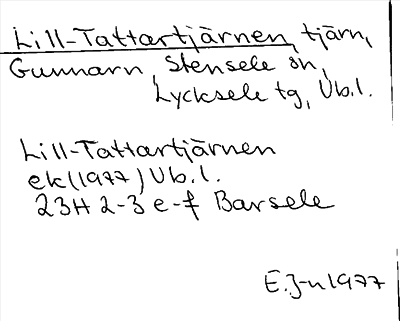 Lill-Tattartjärnen, tjärn,
Gunnarn, Stensele sn,
Lycksele tg, Vb.l.
Lill-Tattartjärnen
ek(1977) Vb.l.
23H 2-3 e-f Barsele
E.J-n 1977